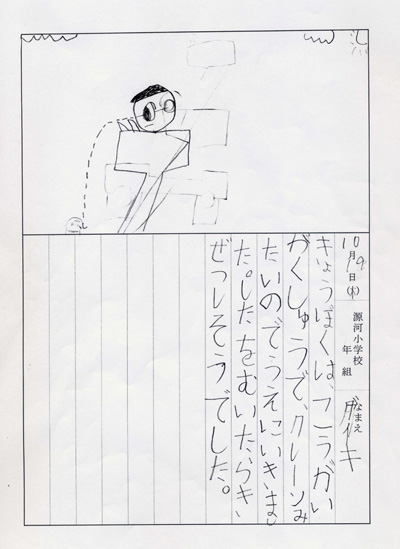 10月19日(木) 源河小学校 年 組 なまえ ダイキ
きょうぼくは、こうがい
がくしゅうで、クレーンみ
たいのでうえにいきまし
た。したをむいたらき
ぜつしそうでした。